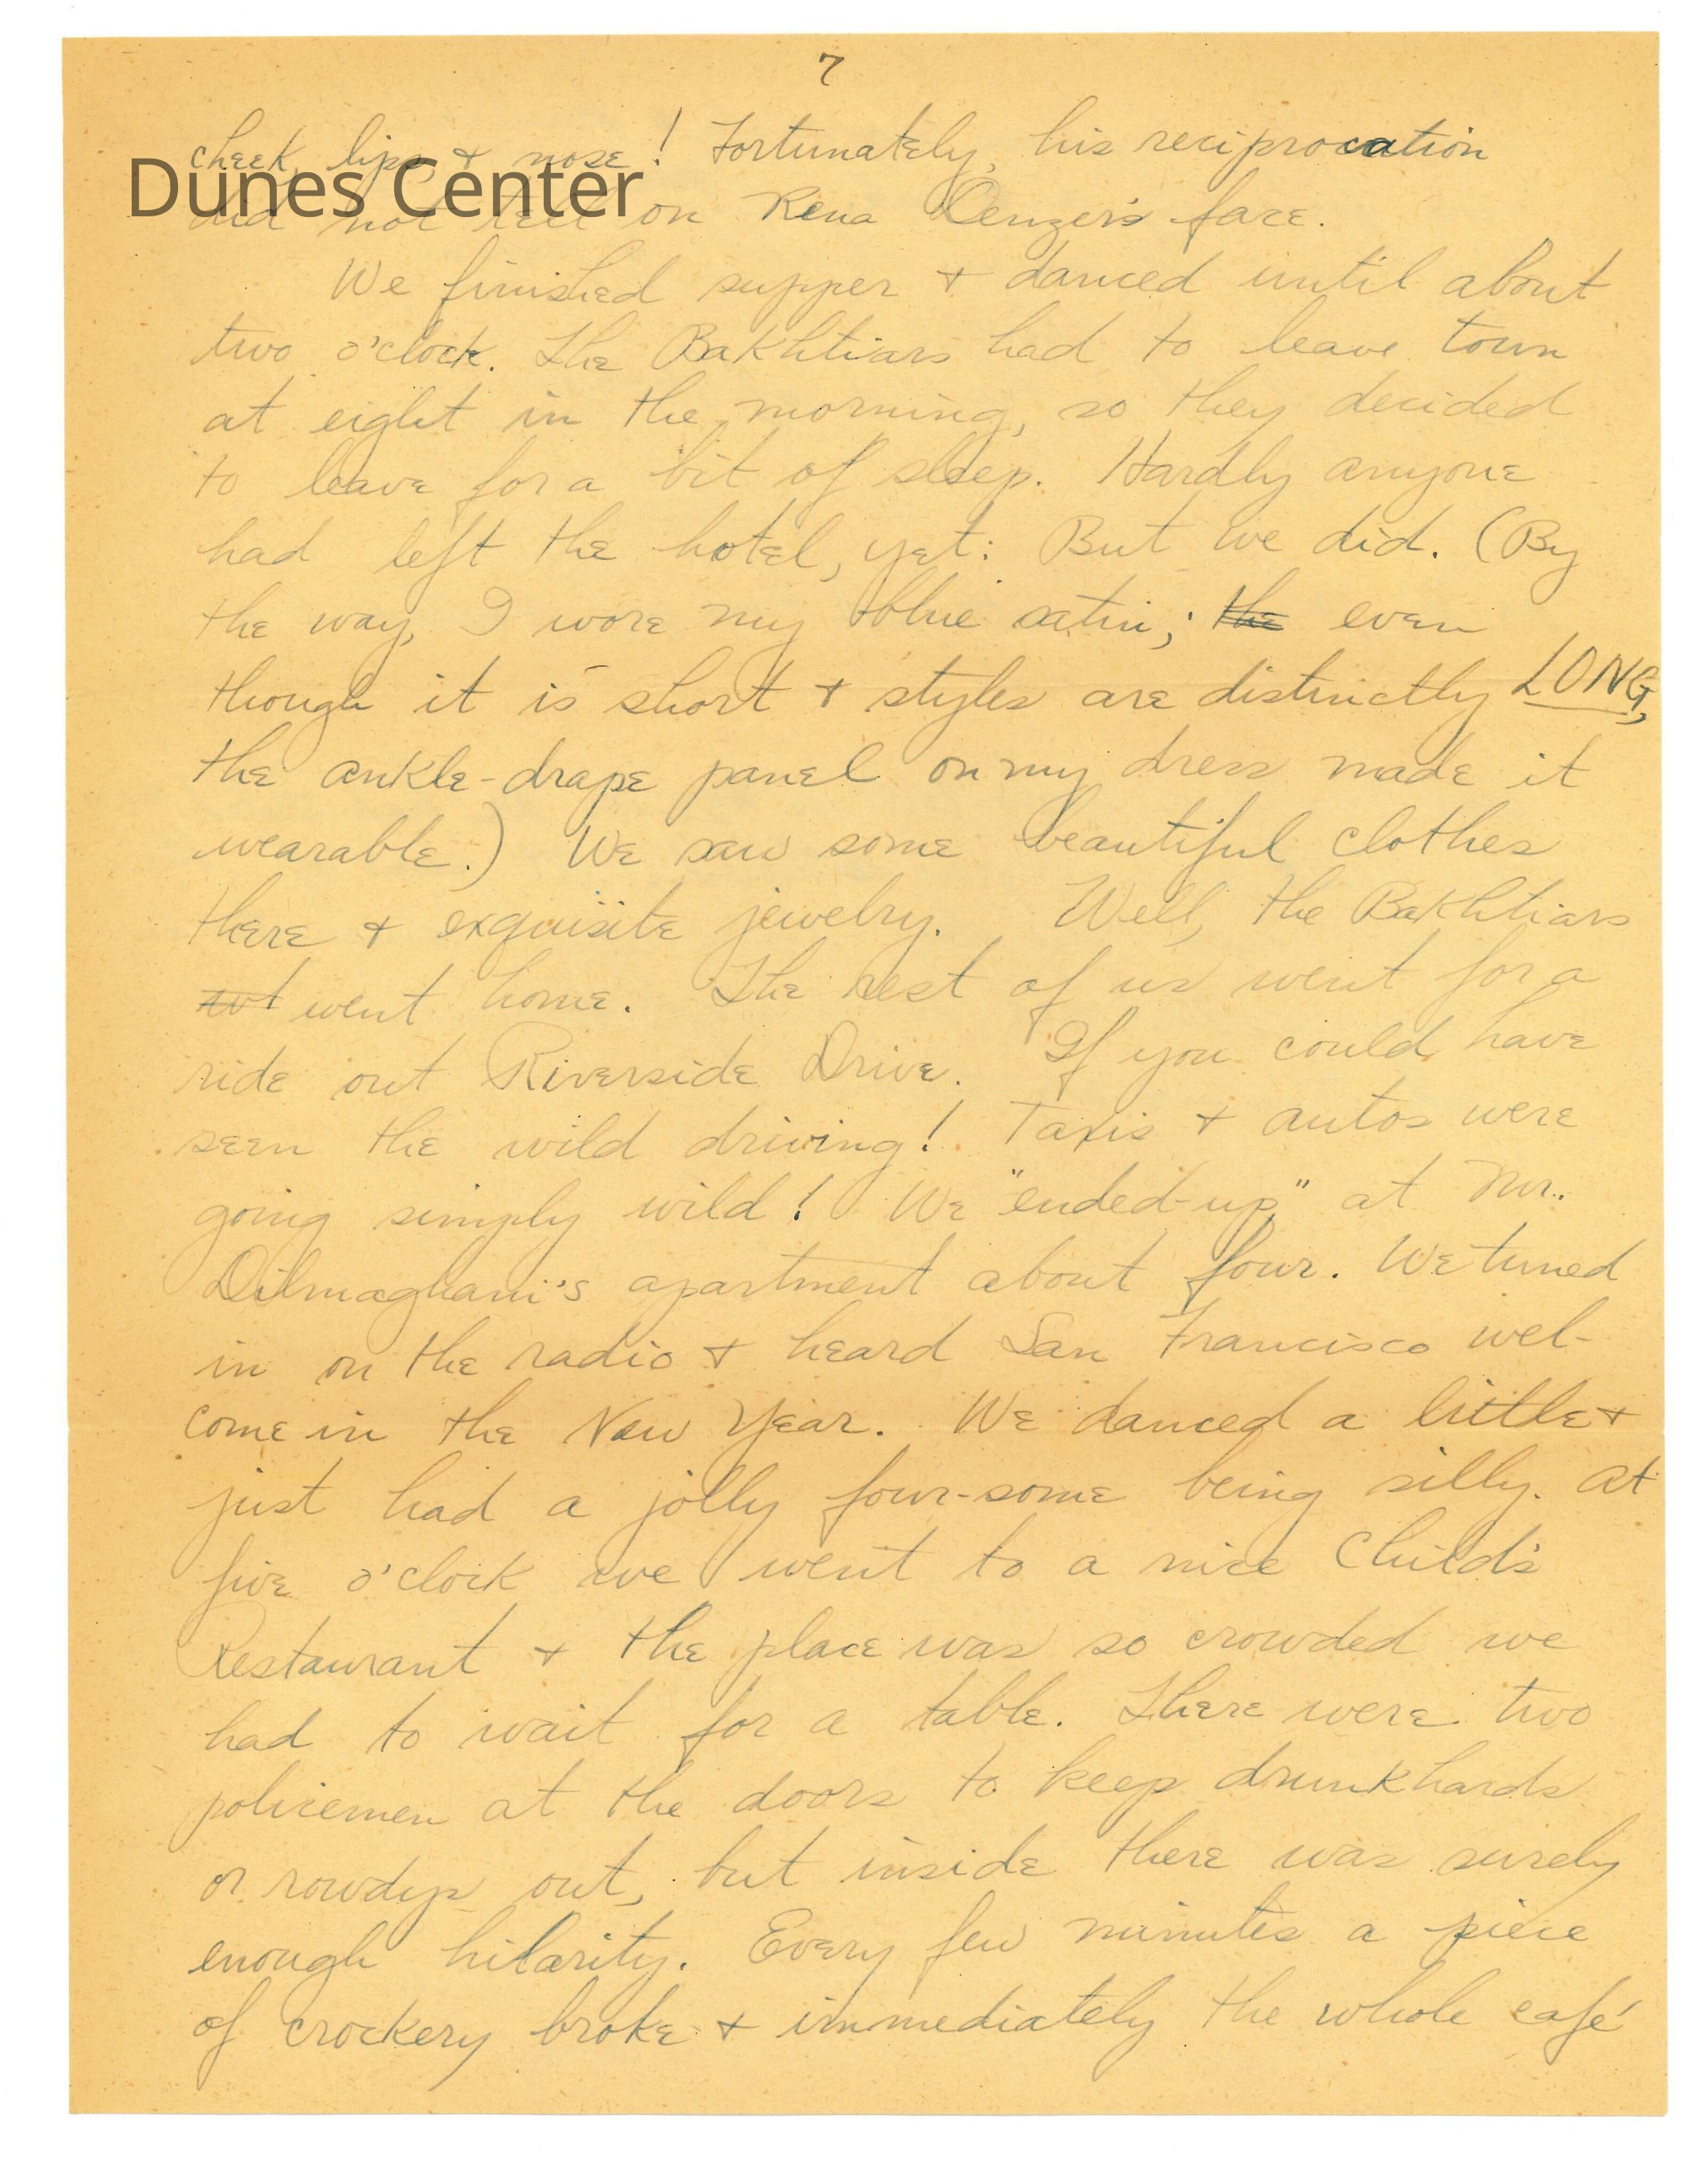 7
cheek, lips & nose! Fortunately, his reciprocation
Dunes Center
did not tell on Rena Clenzer's face.
We finished supper & danced until about
two o'clock. The Bakhtiars had to leave town
at eight in the morning, so they decided
to leave for a bit of sleep. Hardly anyone
had left the hotel, yet: But we did. (By
the way, I wore my blue satin; the even
though it is short & styles are distinctly LONG,
the ankle-drape panel on my dress made it
wearable.) We saw some beautiful clothes
there & exquisite jewelry. Well, the Bakhtiars
went home. The rest of us went for a
ride out Riverside Drive. If you could have
seen the wild driving! Taxis & autos were
going simply wild! We "ended-up" at Mr.
Dilmaghani's apartment about four. We tuned
in on the radio & heard San Francisco wel-
come in the New Year. We danced a little &
just had a jolly four-some being silly. At
five o'clock we went to a nice Child's
Restaurant & the place was so crowded we
had to wait for a table. There were two
policemen at the doors to keep drunkhards
or rowdys out, but inside there was surely
enough hilarity. Every few minutes a piece
of crockery broke & immediately the whole café